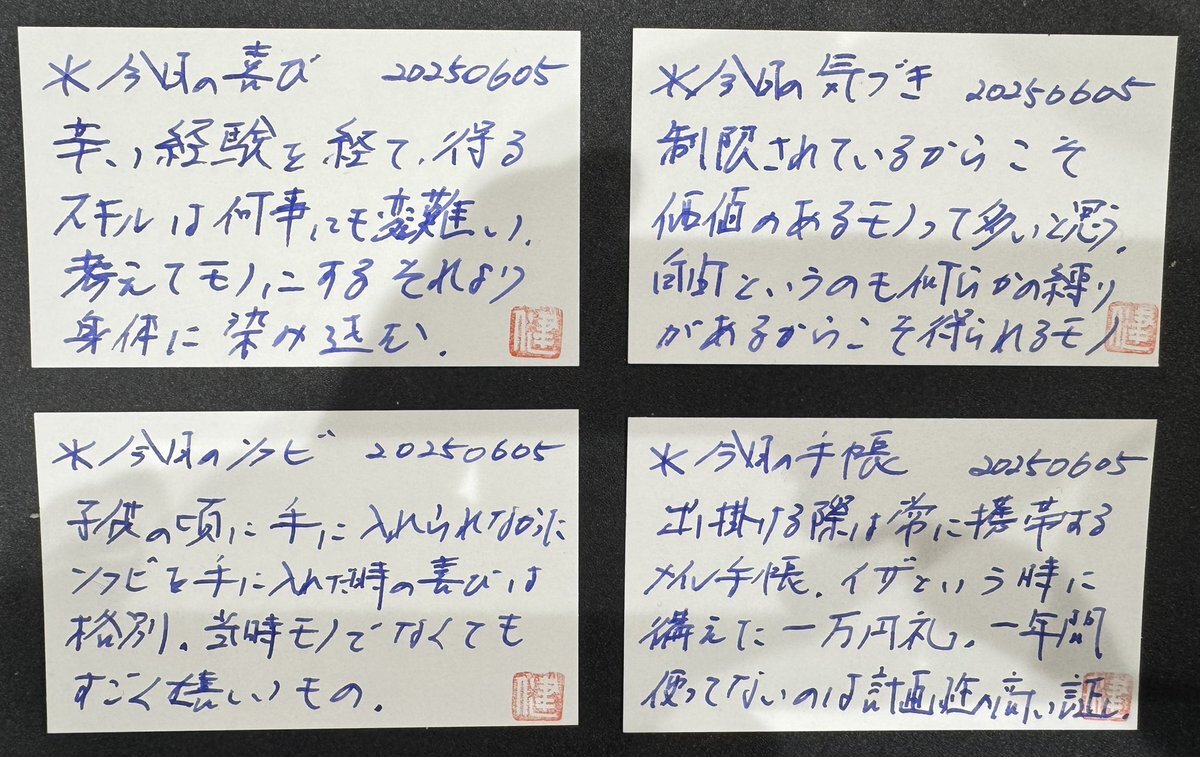 *今日の喜び 20250605
辛い経験を経て、得る
スキルは何事にも変え難い。
考えてモノにするそれより
身体に染み込む。
健
*今日の気づき 20250605
制限されているからこそ
価値のあるモノって多いと思う。
自由というのも何らかの縛り
があるからこそ得られるモノ
健
*今日のソフビ 20250605
子供の頃に手に入れられなかった
ソフビを手に入れた時の喜びは
格別。当時モノでなくても
すごく嬉しいもの。
健
*今日の手帳 20250605
出掛ける際は常に携帯する
メイン手帳。イザという時に
構えた一万円札。一年間
使ってないのは計画性の高い証。
健